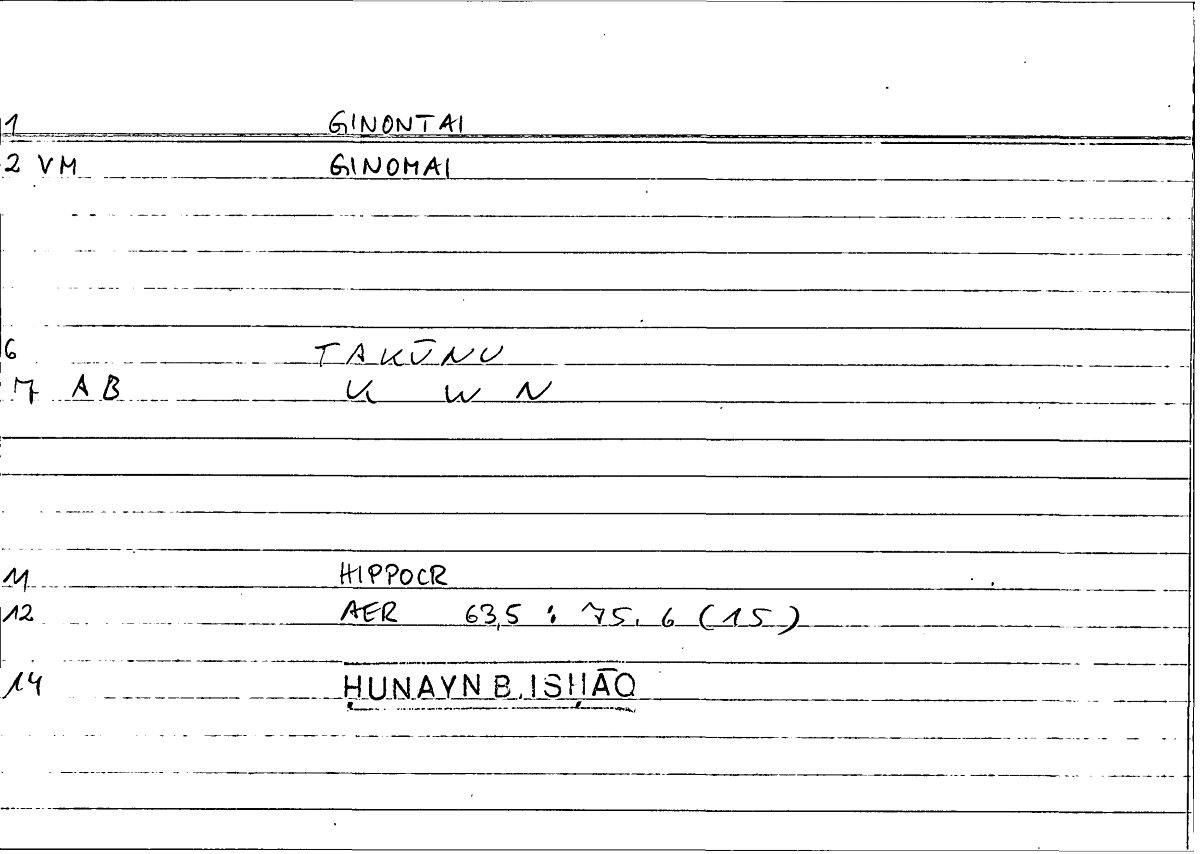 1 GINONTAI
2 VM GINOMAI
6 TAKŪNU
7 AB K W N
11 HIPPOCR
12 AER 63,5 : 75. 6 (15)
14 ḤUNAYN B. ISḤĀQ